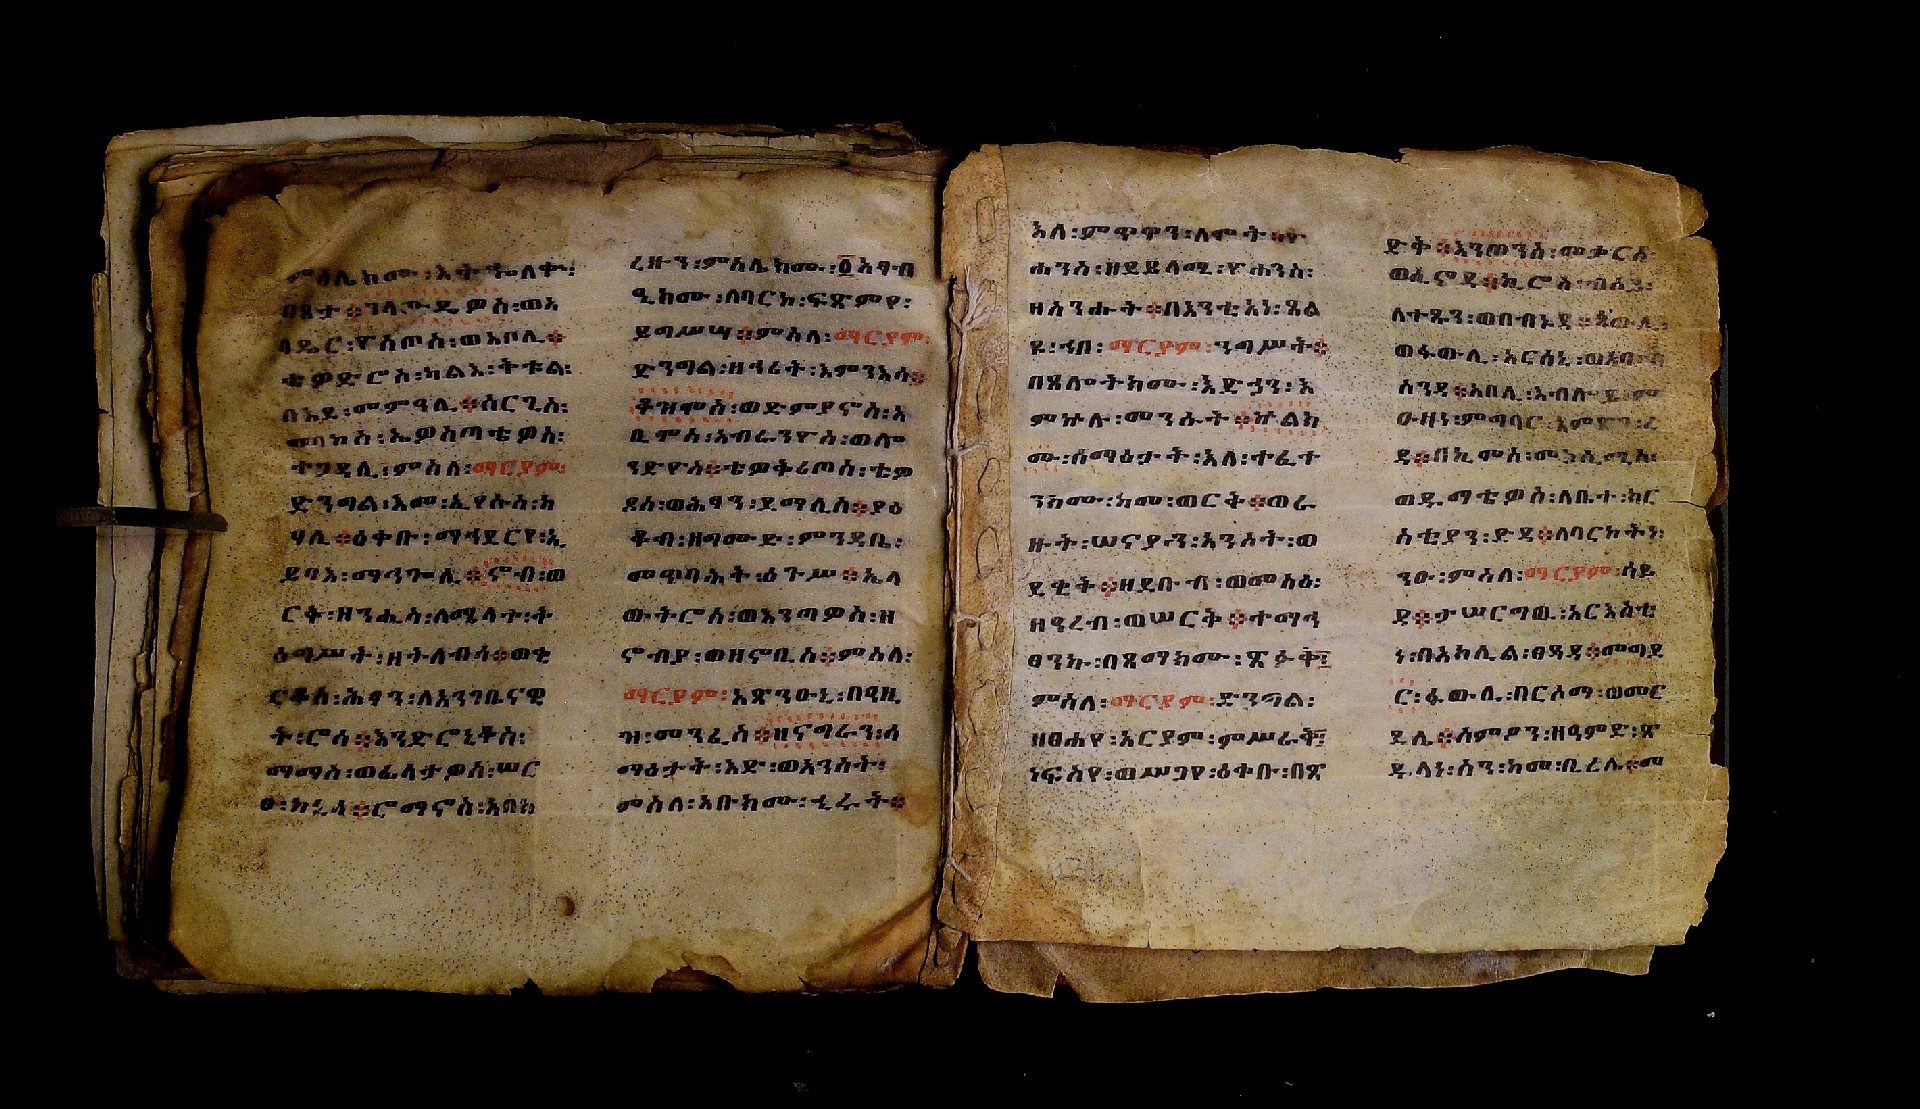 ምስሌክሙ፡እት
በጼተ፨
ባዴር፡ዮስጦስ፡ወአቦሊ፨
ቴዎድሮስ፡ካልእ፡ትቱል፡
በእደ፡መምዓሊ፨ሰርጊስ፡
ወባኮስ፡ኤዎስጣቴዎስ፡
ተጋዳሊ፡ምስለ፡ማርያም፡
ድንግል፡እመ፡ኢየሱስ፡ክ
ሃሊ፨ዕቀቡ፡ማኅደርየ፡ኢ
ይባእ፡ማኅጐሊ፨ኖብ፡ወ
ርት፡ዘንሒሳ፡ለሜላት፡ት
ዕግሥት፡ዘትለብሳ፨ወቂ
ርቆስ፡ሕፃን፡ለእንገቤናዊ
ት፡ሮሳ፨እንድሮኒቆስ፡
ማማስ፡ወፊላታዎስ፡ሠር
ፀ፡ክኒሳ፨ሮማኖስ፡አበከ
ረዙን፡ምስሌክሙ፡፬አፃብ
ዒክሙ፡ለባርኮ፡ፍጽምየ፡
ይግሥሣ፨ምስለ፡ማርያም፡
ድንግል፡ዘኀሬት፡እምንእሳ፨
ቆዝሞስ፡ወድምያኖስ፡አ
ቢሞስ፡አብራንዮስ፡ወሎ
ንድዮስ፨ቴዎቅሪጦስ፡ቴዎ
ዳስ፡ወሕፃን፡ዲማሊስ፨ያዕ
ቆብ፡ዘግሙድ፡ምንዳቤ፡
መጥባሕት፡ዕጉሥ፨ኢላ
ውትሮስ፡ወእንጣዎስ፡ዘ
ኖብያ፡ወዘኖቢስ፨ምስለ፡
ማርያም፡አጽንዑኒ፡በጊዜ
ዝ፡መንፈስ፨ዘናግራን፡ሰ
ማዕታት፡እድ፡ወአንስት፡
ምስለ፡አቡክሙ፡ኂሩት፨
እለ፡ምጥዋን፡ለሞት፨ዮ
ሐንስ፡ዘደይለሚ፡ዮሐንስ፡
ዘስንሑት፨በእንቲአነ፡ጸል
ዩ፡ኀበ፡ማርያም፡ንግሥት፨
በጸሎትክሙ፡እድኃን፡እ
ምኵሉ፡መንሱት፨ኵልክ
ሙ፡ሰማዕታት፡እለ፡ተፈተ
ንክሙ፡ከመ፡ወርቅ፨ወራ
ዙት፡ሠናያን፡አንስት፡ወ
ደቂቅ፨ዘደቡብ፡ወመስዕ፡
ዘዓረብ፡ወሠርቅ፨ተማኅ
ፀንኩ፡በጼማክሙ፡ጽድቅ፨
ምስለ፡ማርያም፡ድንግል፡
ዘፀሐየ፡አርያም፡ምሥራቅ፨
ነፍስየ፡ወሥጋየ፡ዕቀቡ፡በጽ
ድቅ፨እንጦንስ፡መቃርስ
ወሲኖዳ፨ኪሮስ፡ብሶይ፡
ለተጹን፡ወበብኑዳ፨
ወፋውሊ፡አርሰኒ፡
ሰንዳ፨አበሊ፡አብሎ፡
ዑዘነ፡ምግባር፡እምጽን፡ረ
ዳ፨በኪሞስ፡መክሲሚስ፡
ወዱማቴዎስ፡ለቤተ፡ክር
ስቲያን፡ድዳ፨ለባርኮትነ፡
ንዑ፡ምስለ፡ማርያም፡ሳይ
ዳ፨ታሠርግዉ፡አርእስቲ
ነ፡በአክሊል፡ፀዳዳ፨መግደ
ር፡ፋውሊ፡በርሶማ፡ወመር
ዳሊ፨ሳምዖን፡ዘዓምድ፡ጽ
ዱላነ፡ስን፡ከመ፡ቢረሌ፨መ